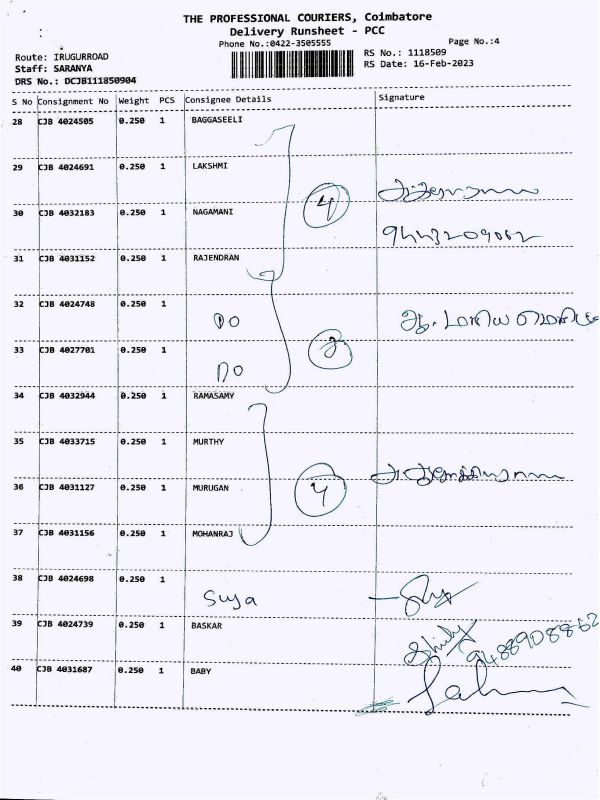 THE PROFESSIONAL COURIERS, Coimbatore
Delivery Runsheet - PCC
Phone No.:0422-3505555
Page No.:4
Route: IRUGURROAD
RS No.: 1118509
Staff: SARANYA
RS Date: 16-Feb-2023
DRS No.: DCJB111850904
S No Consignment No Weight PCS Consignee Details Signature
28 CJB 4024505 0.250 1 BAGGASEELI
29 CJB 4024691 0.250 1 LAKSHMI
4
30 CJB 4032183 0.250 1 NAGAMANI
9443209062
31 CJB 4031152 0.250 1 RAJENDRAN
32 CJB 4024748 0.250 1
DO
33 CJB 4027701 0.250 1
DO
34 CJB 4032944 0.250 1 RAMASAMY
35 CJB 4033715 0.250 1 MURTHY
36 CJB 4031127 0.250 1 MURUGAN
4
37 CJB 4031156 0.250 1 MOHANRAJ
38 CJB 4024698 0.250 1
Suja
39 CJB 4024739 0.250 1 BASKAR
9488908862
40 CJB 4031687 0.250 1 BABY